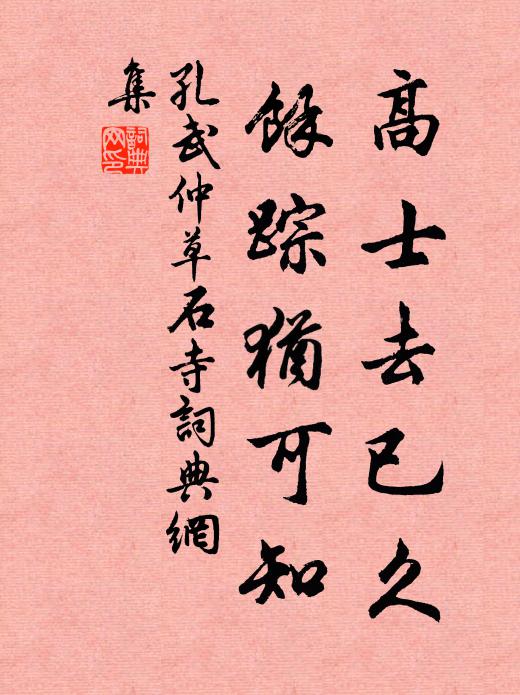 高士去已久
餘踪猶可知
孔武仲草石寺詞典網
集
詞典網印